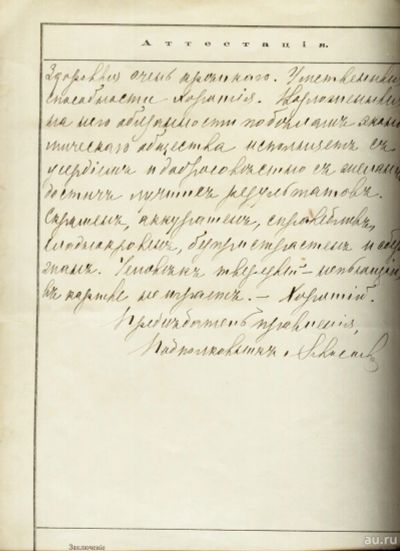 Аттестація.
Здоровья очень крѣпкаго. Умственныя
способности хорошія. Возложенныя
на него обязанности по дѣламъ эконо
мическаго общества исполняетъ съ
усердіемъ и добросовѣстью съ
достичь лучшихъ результатовъ.
Скроменъ, аккуратенъ, справедливъ,
хладнокровенъ, безпристрастенъ и
Человѣкъ непьющій,
въ карты не играетъ. — Хорошій.
Предсѣдатель правленія,
Подполковникъ
Заключеніе
au.ru